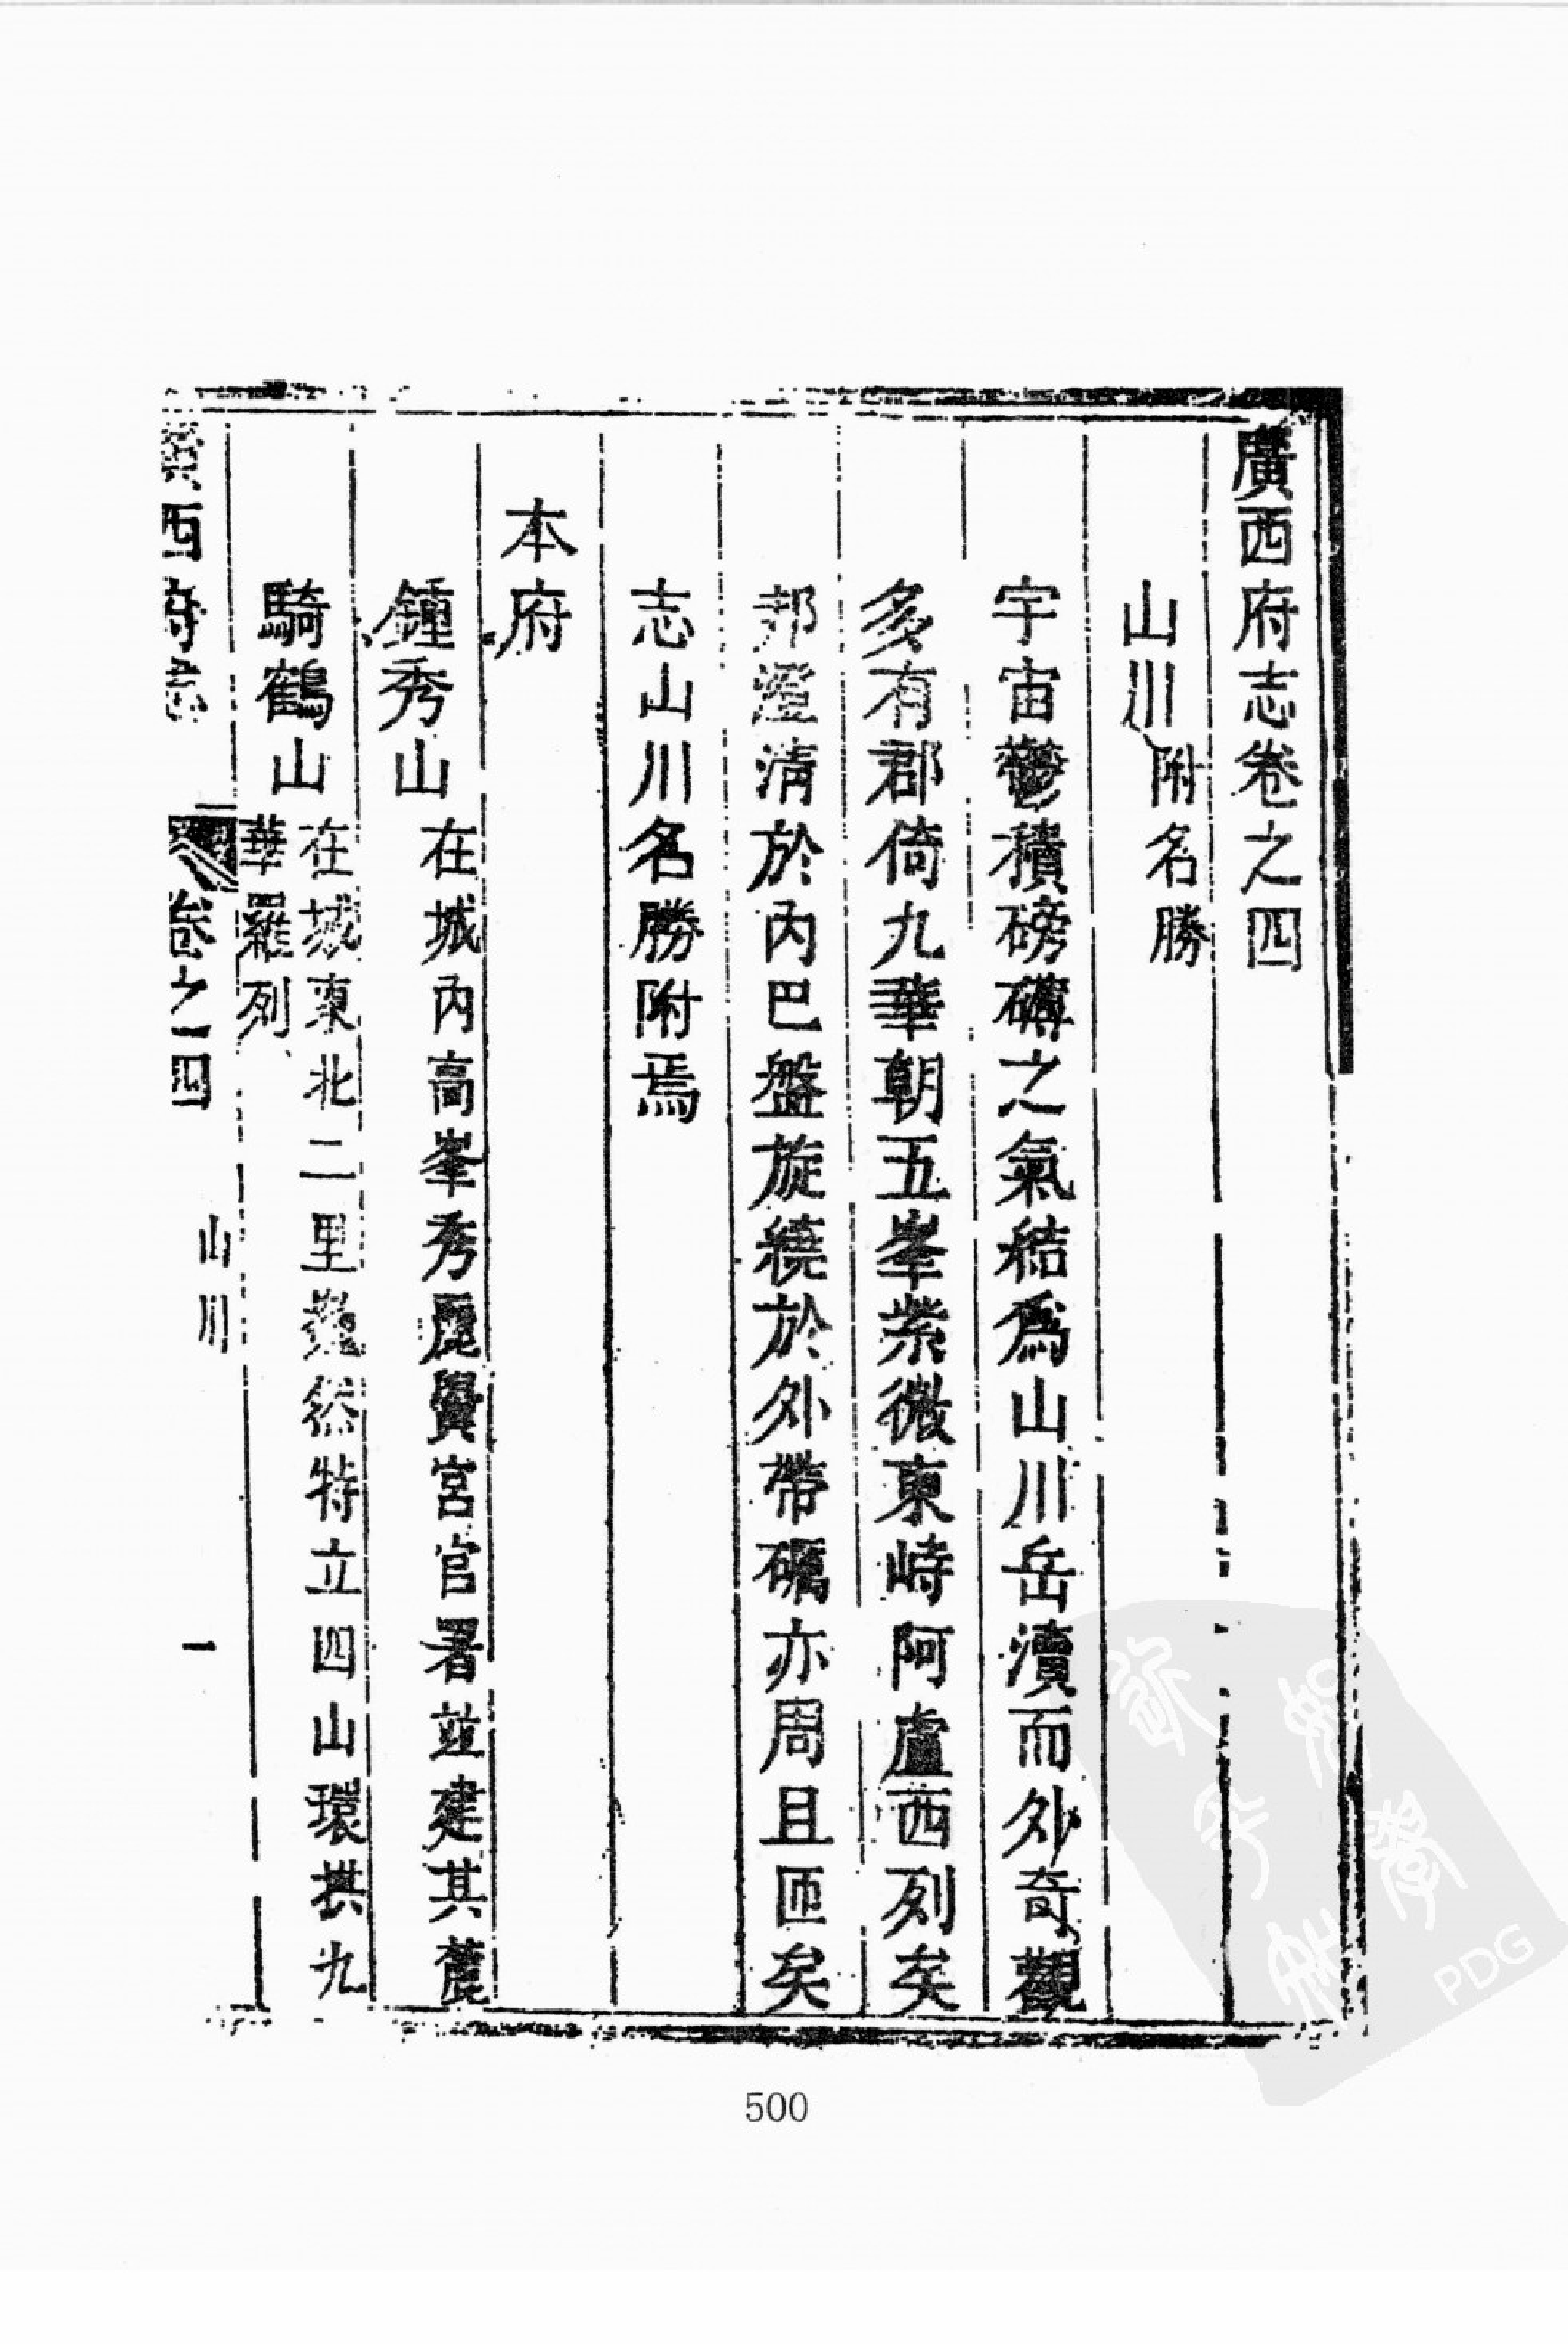 廣西府志卷之四
山川附名勝
宇宙鬱積磅礴之氣結爲山川岳瀆而外奇觀
多有郡倚九華朝五峯紫微東峙阿盧西列矣
邦澄清於內巴盤旋繞於外帶礪亦周且匝矣
志山川名勝附焉
本府
鍾秀山在城內高峯秀麗黌宮官署並建其麓
騎鶴山在城東北二里巍然特立四山環拱九
華羅列
廣西府志 卷之四 山川 一
500
PDG